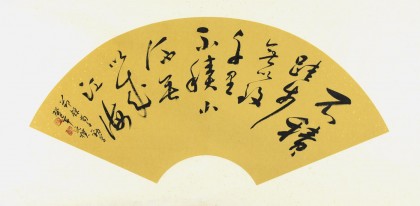 不積
跬步
無以致
千里
不積小
流無
以成
江海